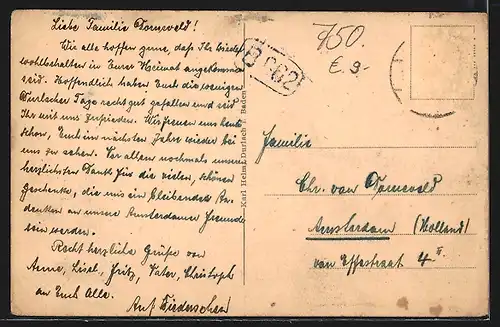 Liebe Familie Torneveld!
Wir alle hoffen gerne, daß Ihr wieder
wohlbehalten in Eurer Heimat angekommen
seid. Hoffentlich haben Euch die wenigen
Durlacher Tage recht gut gefallen und seid
Ihr mit uns zufrieden. Wir freuen uns heute
schon, Euch im nächsten Jahre wieder bei
uns zu sehen. Vor allem nochmals unsern
herzlichsten Dank für die vielen, schönen
Geschenke, die uns ein bleibendes An-
denken an unsere Amsterdamer Freunde
sein werden.
Recht herzliche Grüße von
Anne, Liesel, Fritz, Vater, Christoph
an Euch Alle.
Auf Wiedersehen
Karl Helm, Durlach i. Baden
750.
€ 9.-
Familie
Chr. van Torneveld
Amsterdam (Holland)
van Effestraat 4 II